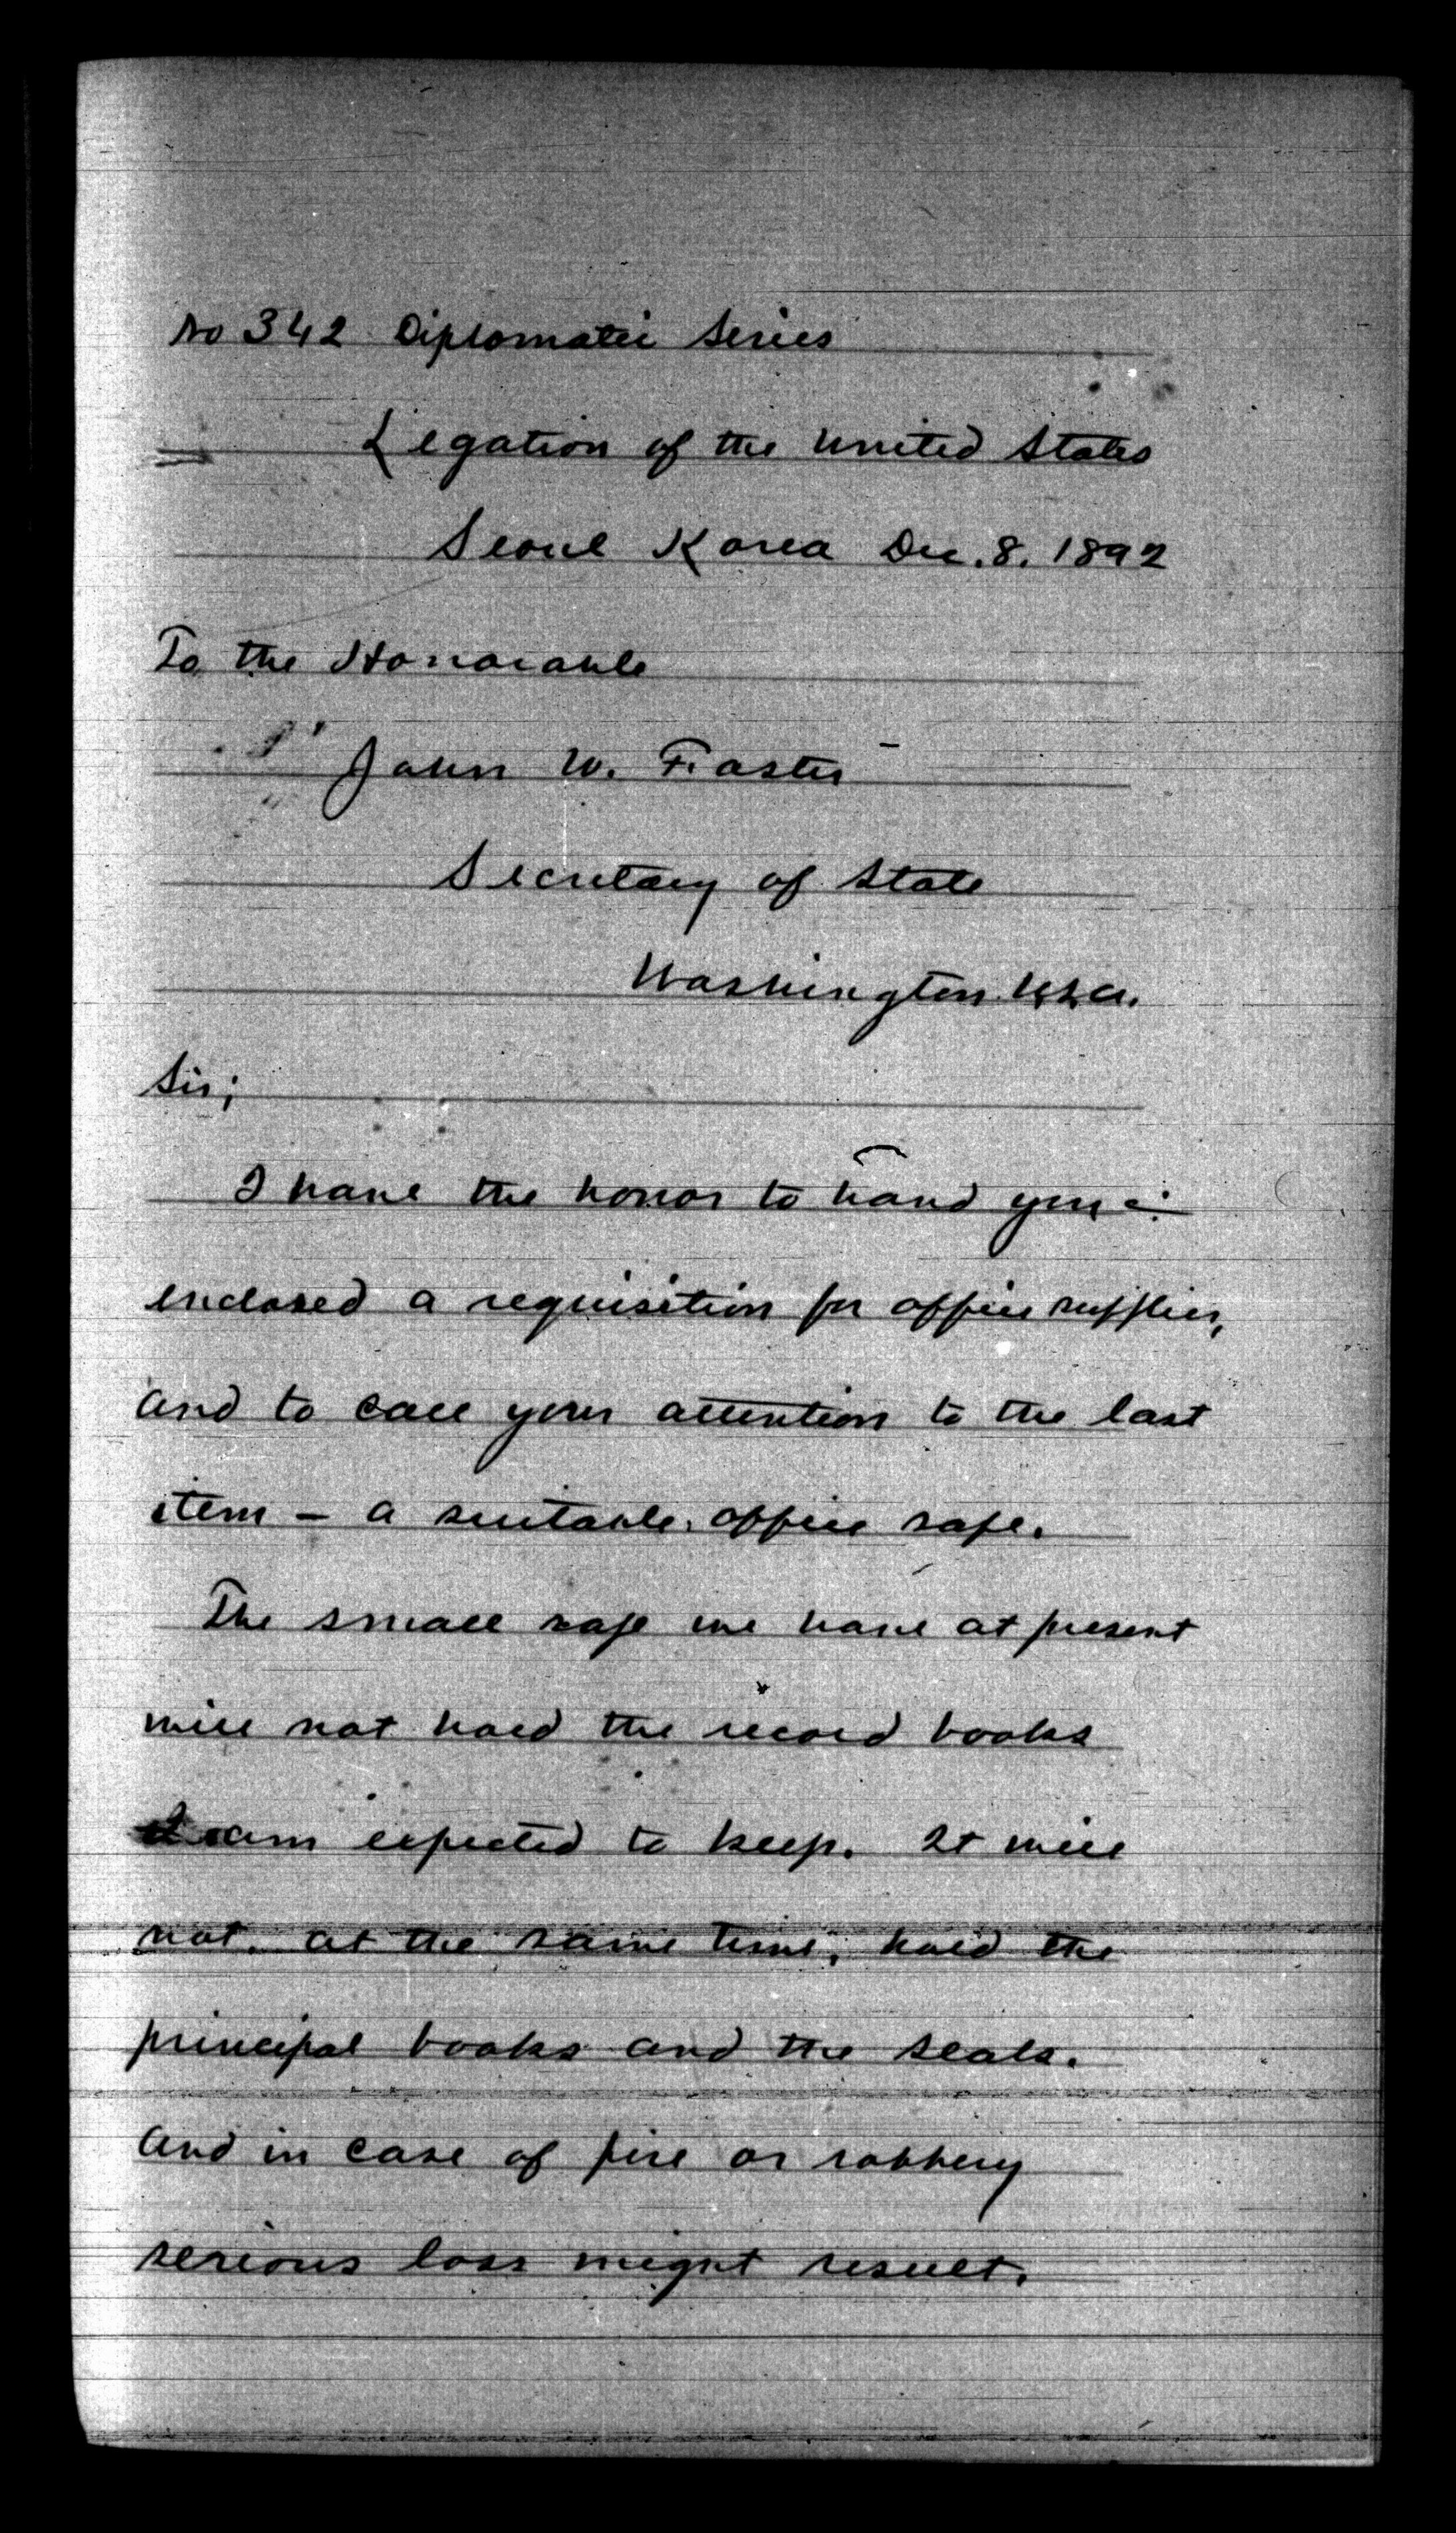 No 342 Diplomatic Series
Legation of the United States
Seoul Korea Dec. 8. 1892
To the Honorable
John W. Foster
Secretary of State
Washington U.S.A.
Sir;
I have the honor to hand you
enclosed a requisition for office supplies,
and to call your attention to the last
item - a suitable office safe.
The small safe we have at present
will not hold the record books
I am expected to keep. It will
not, at the same time, hold the
principal books and the seals.
And in case of fire or robbery
serious loss might result.